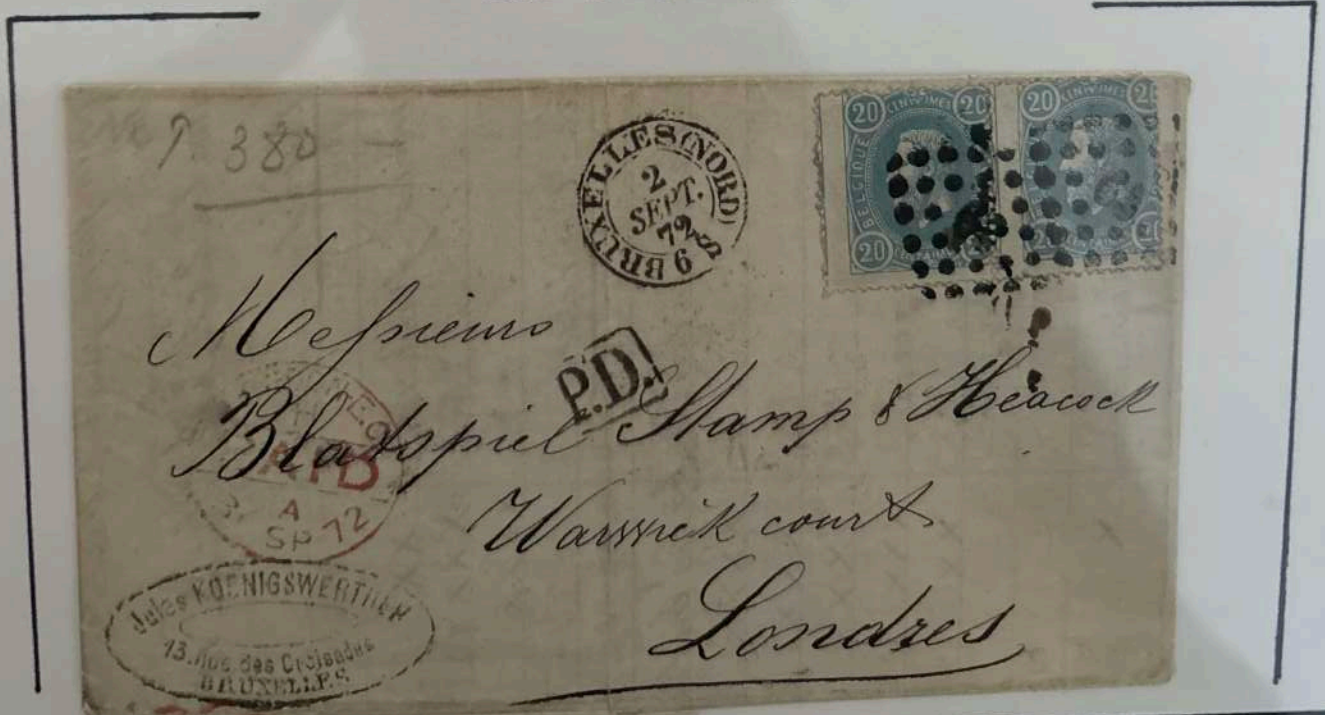 380 -
BRUXELLES (NORD)
2
SEPT.
72
6 S
20 CENTIMES 20
BELGIQUE
20 CENTIMES 20
20 CENTIMES 20
20 CENTIMES 20
Messieurs
P.D.
Blatspiel Stamp & Heacock
Warwick court
Londres
PAID
A
SP 72
Jules KOENIGSWERTHER
13. Rue des Croisades
BRUXELLES